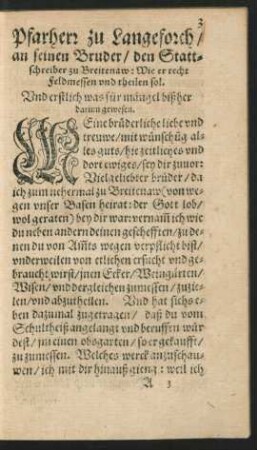 3
Pfarherr zu Langeforch/
an seinen Bruder/ den Statt-
schreiber zu Breitenaw: Wie er recht
Feldmessen vnd theilen sol.
Vnd erstlich was für mängel bißher
darinn gewesen.
MEine brüderliche liebe vnd
treuwe/ mit wünschũg al-
les guts/ hie zeitliches vnd
dort ewiges/ sey dir zuuor:
Vielgeliebter brüder/ da
ich zum nehermal zu Breitenaw (von we-
gen vnser Basen heirat: der Gott lob/
wol geraten) bey dir war: vernam ich wie
du neben andern deinen geschefften/ zu de-
nen du von Ampts wegen verpflicht bist/
vnderweilen von etlichen ersucht vnd ge-
braucht wirst/ jnen Ecker/ Weingärten/
Wisen/ vnd dergleichen zumessen/ zuzie-
len/ vnd abzutheilen. Vnd hat sichs e-
ben dazumal zugetragen/ daß du vom
Schultheiß angelangt vnd beruffen wür-
dest/ jm einen obsgarten/ so er gekaufft/
zu zumessen. Welches werck anzuschau-
wen/ ich mit dir hinauß gieng: weil ich
A 3